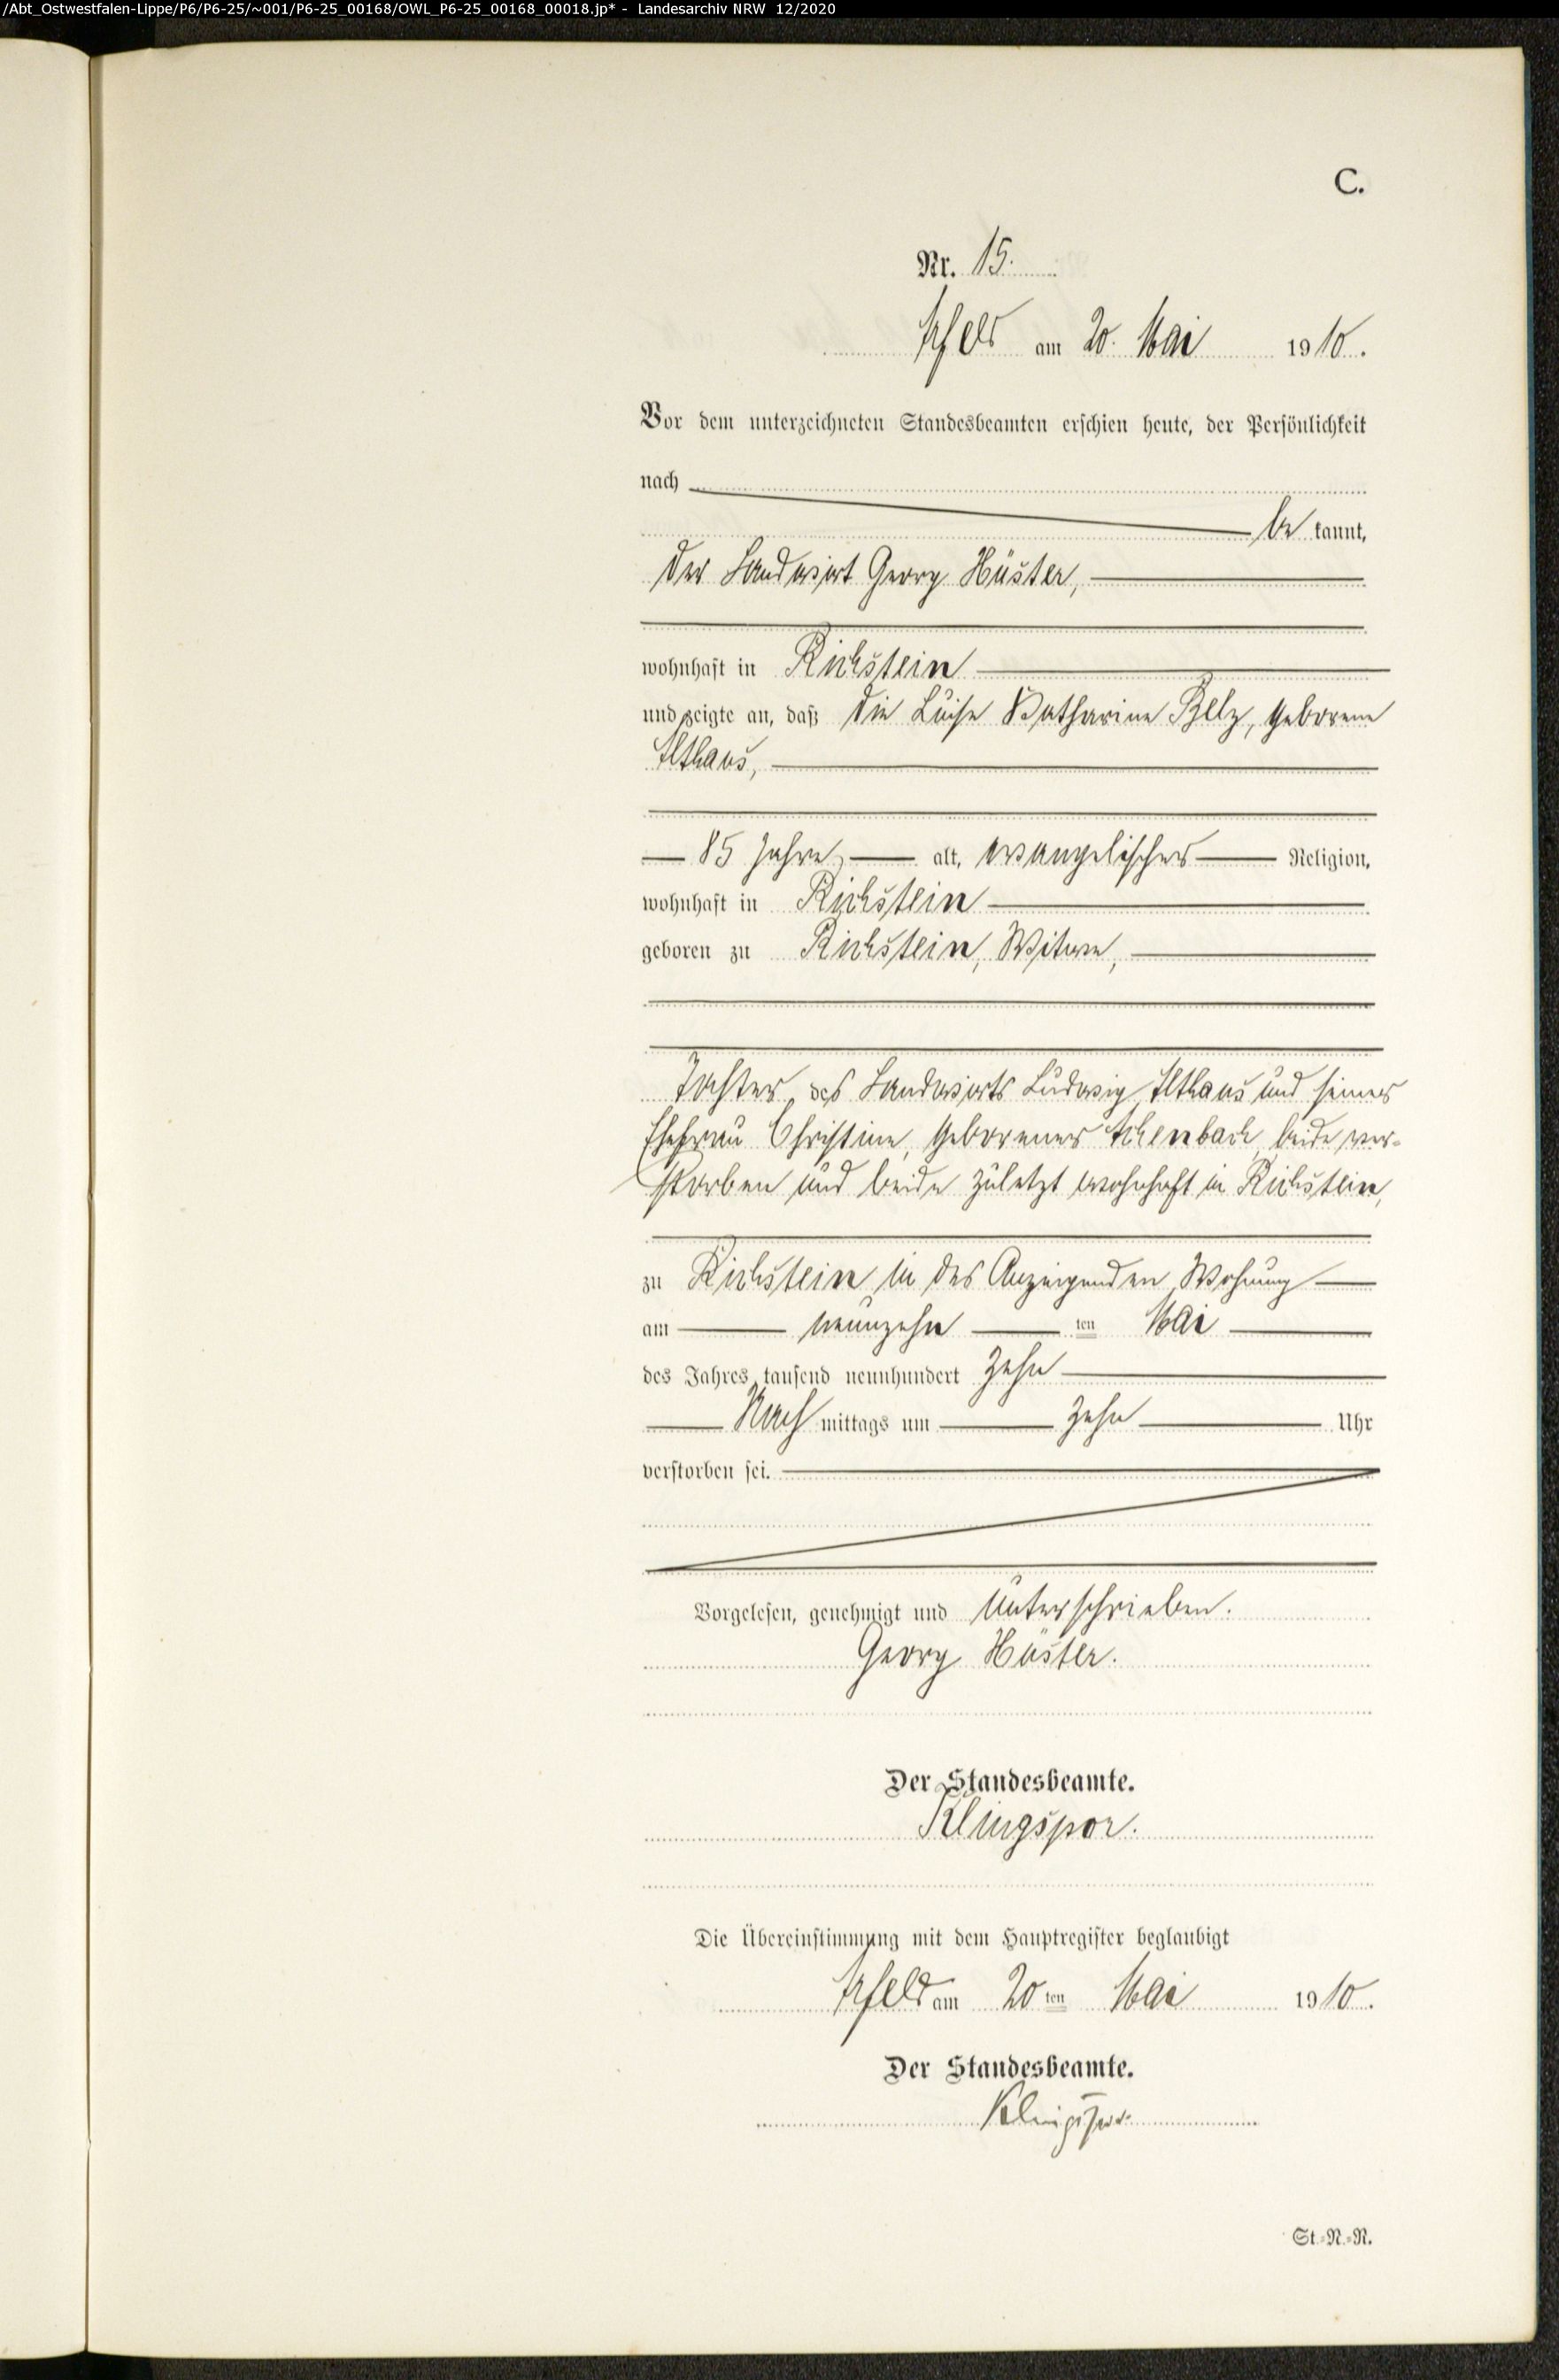 /Abt_Ostwestfalen-Lippe/P6/P6-25/~001/P6-25_00168/OWL_P6-25_00168_00018.jp* - Landesarchiv NRW 12/2020
C.
Nr. 15.
Arfeld am 20. Mai 1910.
Vor dem unterzeichneten Standesbeamten erschien heute, der Persönlichkeit
nach
be kannt,
der Landwirt Georg Hüster,
wohnhaft in Richstein
und zeigte an, daß die Luise Katharine Belz, geborene
Althaus,
85 Jahre, alt, evangelischer Religion,
wohnhaft in Richstein
geboren zu Richstein, Witwe,
Tochter des Landwirts Ludwig Althaus und seiner
Ehefrau Christine, geborener Achenbach, beide ver-
storben und beide zuletzt wohnhaft in Richstein,
zu Richstein in des Anzeigenden Wohnung
am neunzehn ten Mai
des Jahres tausend neunhundert zehn
Nach mittags um zehn Uhr
verstorben sei.
Vorgelesen, genehmigt und unterschrieben.
Georg Hüster.
Der Standesbeamte.
Klingspor.
Die Übereinstimmung mit dem Hauptregister beglaubigt
Arfeld am 20 ten Mai 1910.
Der Standesbeamte.
Klingspor.
St.-N.-R.